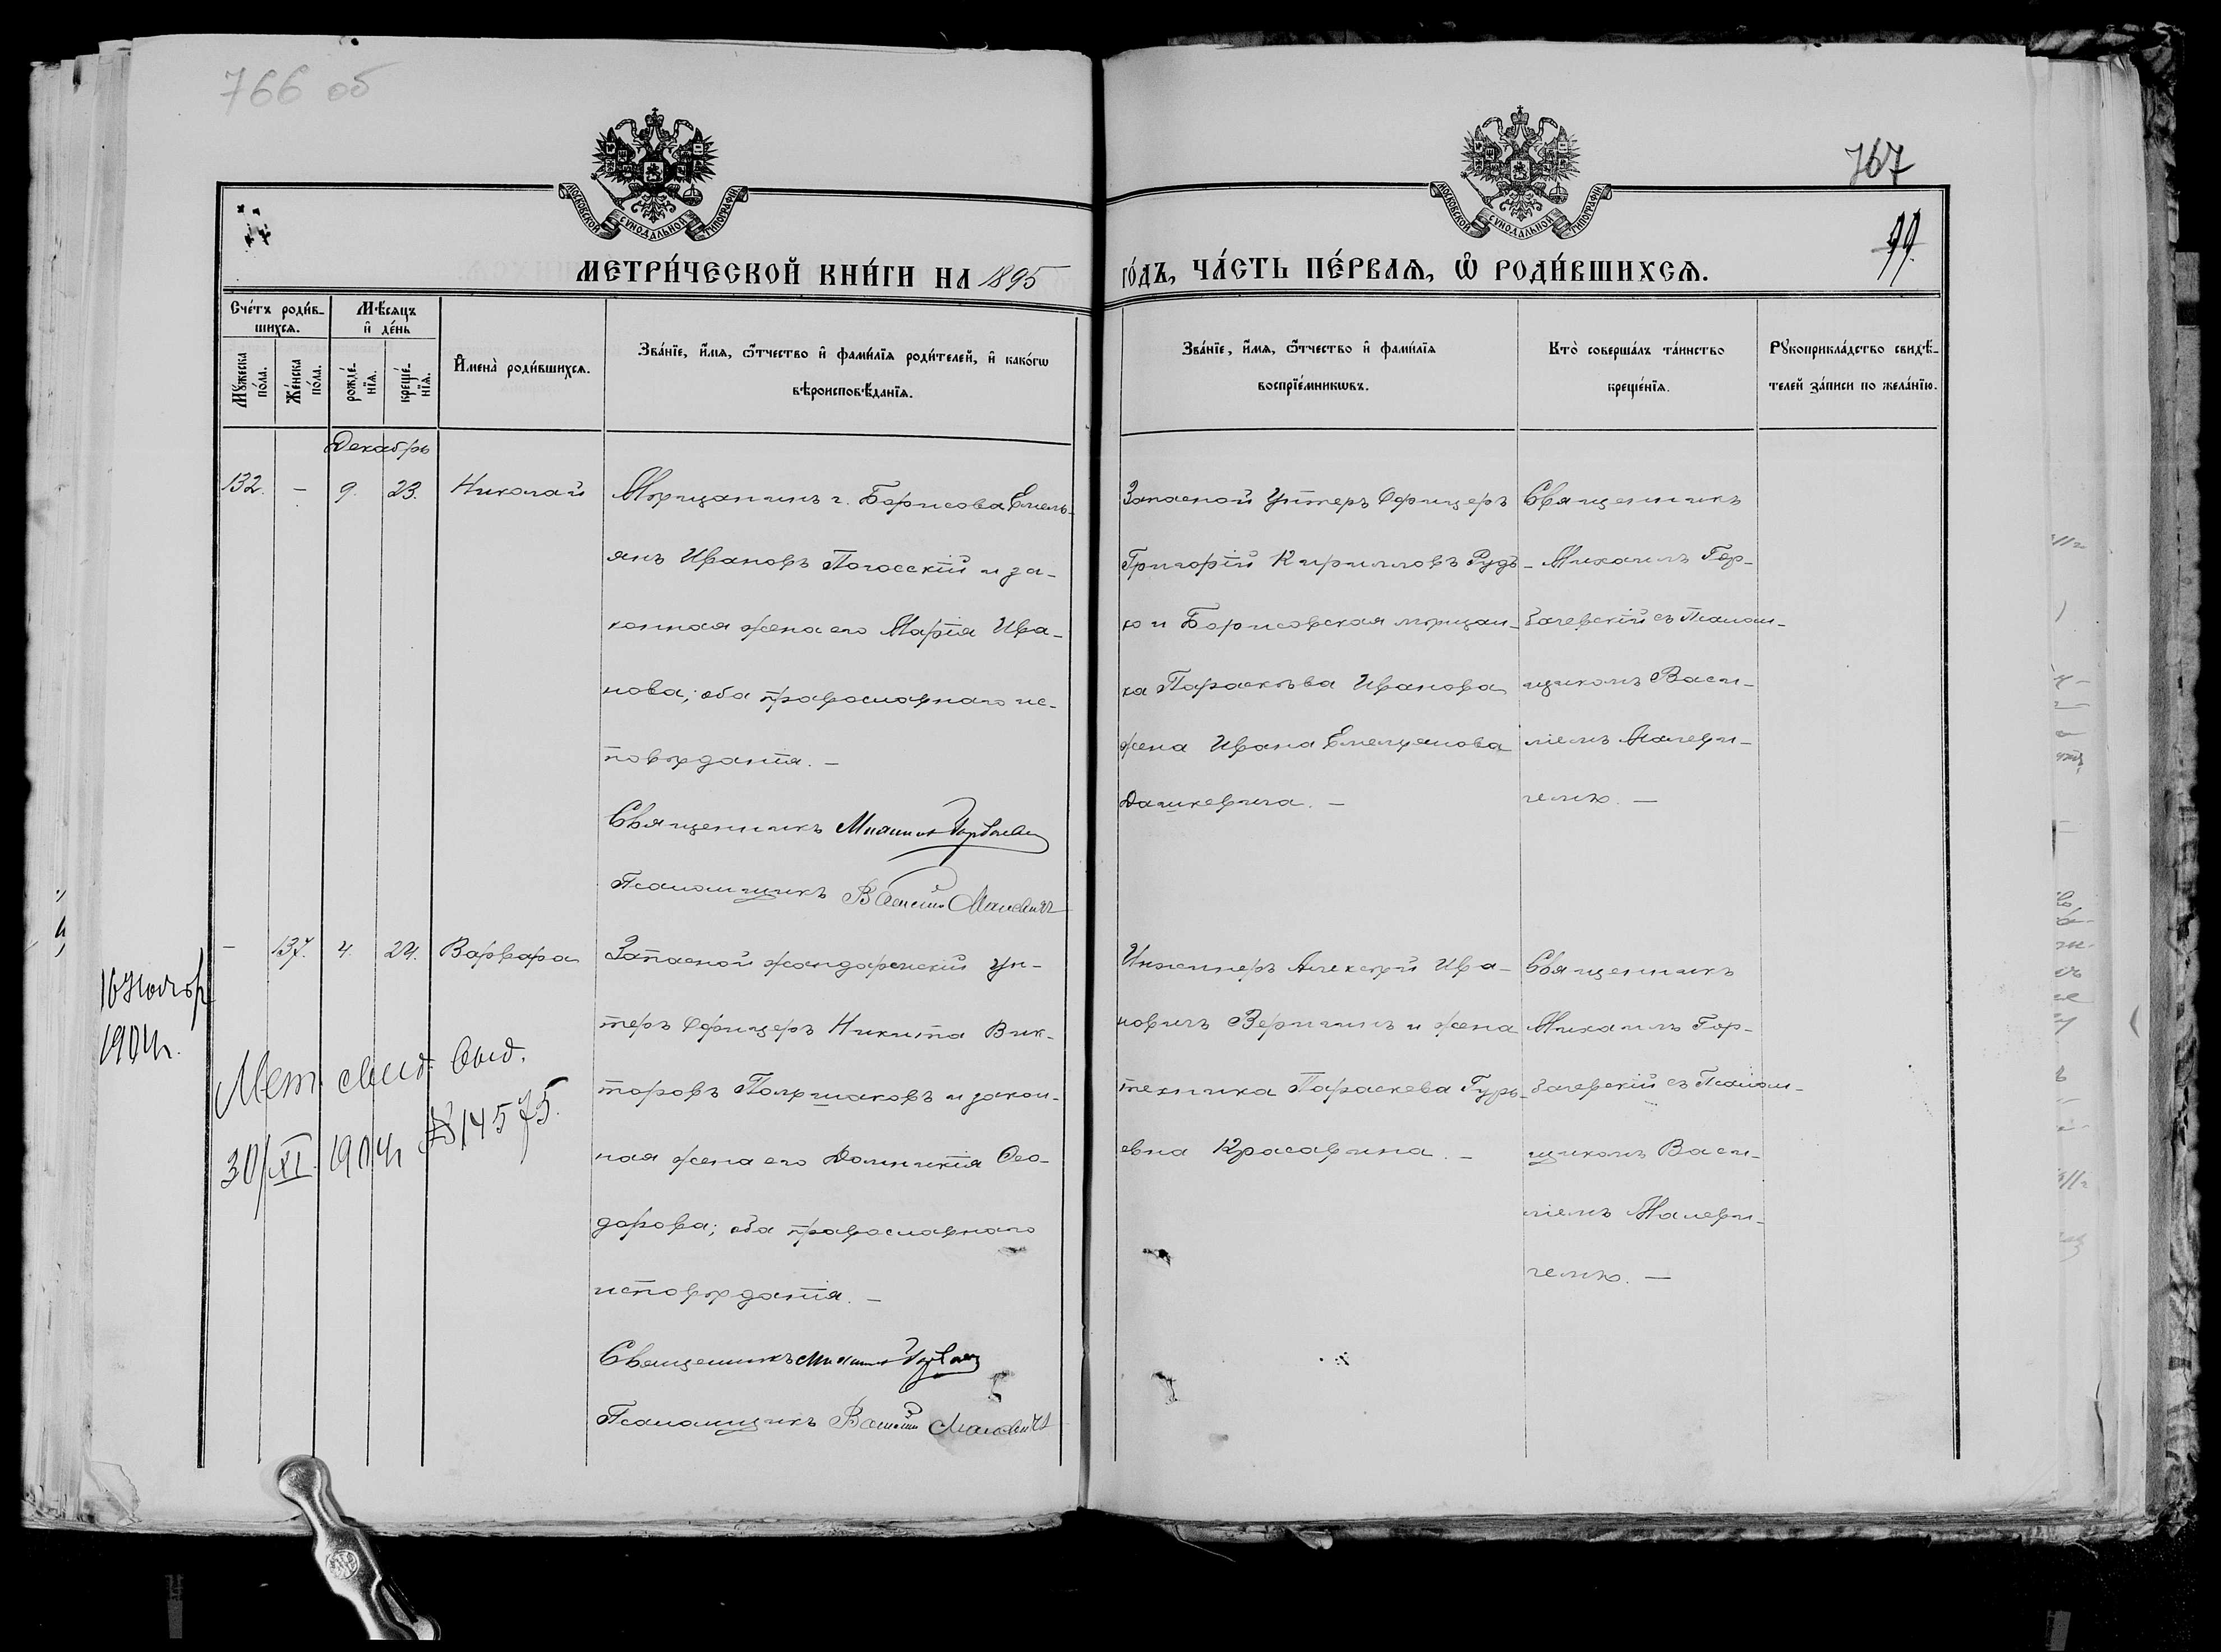 766 об
767
99
МОСКОВСКОЙ СѴНОДАЛЬНОЙ ТИПОГРАФІИ
МОСКОВСКОЙ СѴНОДАЛЬНОЙ ТИПОГРАФІИ
МЕТРИ́ЧЕСКОЙ КНИ́ГИ НА 1895
ГО́ДЪ, ЧА́СТЬ ПЕ́РВАѦ, Ѡ҆ РОДИ́ВШИХСѦ.
Сче́тъ роди́в-
шихсѧ.
Мѣ́сѧцъ
и҆ де́нь
Мꙋ́жеска
по́ла.
Же́нска
по́ла.
рожде́-
нїѧ.
креще́-
нїѧ.
И҆мена̀ роди́вшихсѧ.
Зва́нїе, и҆́мѧ, ѻ҆́тчество и҆ фами́лїѧ роди́телей, и҆ како́гѡ
вѣроисповѣ́данїѧ.
Зва́нїе, и҆́мѧ, ѻ҆́тчество и҆ фами́лїѧ
воспрїе́мникѡвъ.
Кто̀ соверша́лъ та́инство
креще́нїѧ.
Рꙋкоприкла́дство свидѣ́-
телей за́писи по жела́нїю.
Декабрь
132. - 9. 23. Николай
Мѣщанинъ г. Борисова Емель-
янъ Ивановъ Погосскій и за-
конная жена его Марія Ива-
нова; оба православнаго ис-
повѣданія. —
Священникъ Михаилъ Горбачевскій
Псаломщикъ Василій Малевичъ
Запасной Унтеръ Офицеръ
Григорій Кирилловъ Рудь-
ко и Борисовская мѣщан-
ка Параскева Иванова
жена Ивана Емельянова
Дашкевича. —
Священникъ
Михаилъ Гор-
бачевскій съ Псалом-
щикомъ Васи-
ліемъ Малеви-
чемъ. —
- 137. 4. 24. Варвара
Запасной жандармскій Ун-
теръ Офицеръ Никита Вик-
торовъ Полушаковъ и закон-
ная жена его Домникія Ѳео-
дорова; оба православнаго
исповѣданія. —
Священникъ Михаилъ Горбачевскій
Псаломщикъ Василій Малевичъ
Инженеръ Алексѣй Ива-
новичъ Веригинъ и жена
техника Параскева Гурь-
евна Красавина. —
Священникъ
Михаилъ Гор-
бачевскій съ Псалом-
щикомъ Васи-
ліемъ Малеви-
чемъ. —
16 Ноябр
1904 г.
Мет. свид. выд.
30/XI 1904 г №14575.